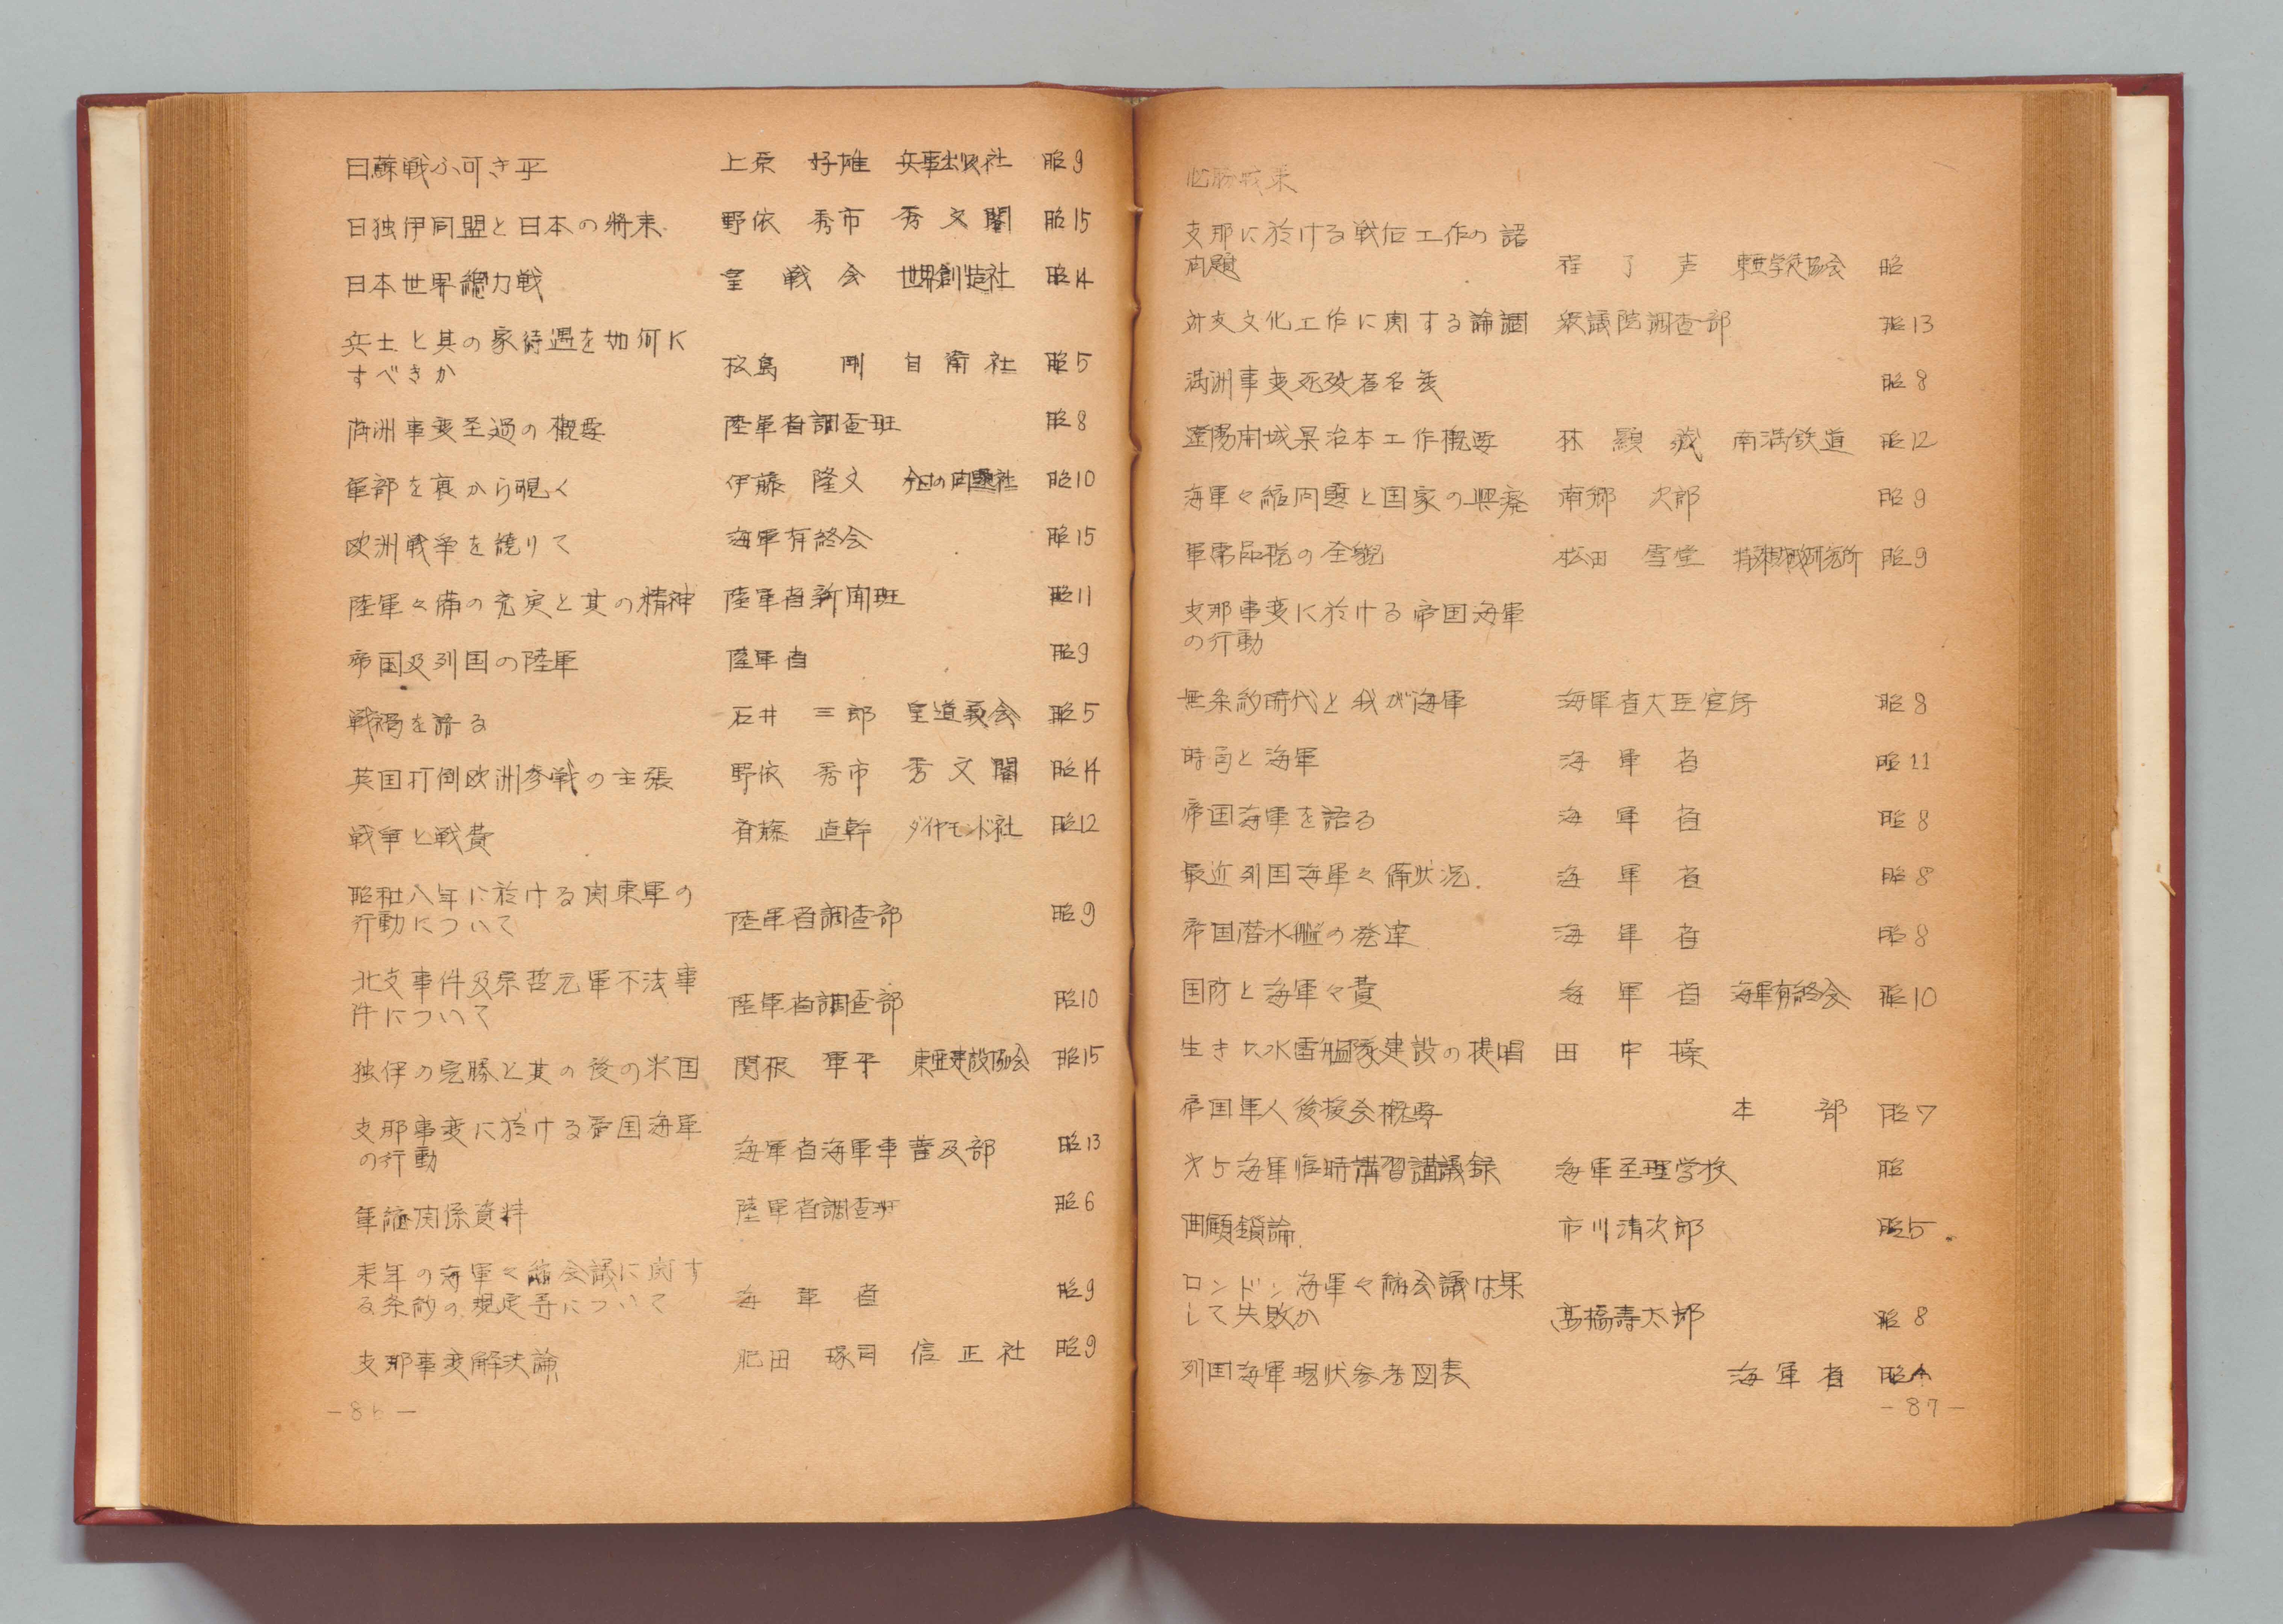 日蘇戦ふ可き乎 上原 好雄 兵事出版社 昭9
日独伊同盟と日本の將来 野依 秀市 秀文閣 昭15
日本世界總力戦 皇戦会 世界創造社 昭14
兵士と其の家待遇を如何に
すべきか 松島 剛 自衛社 昭5
満洲事変至過の概要 陸軍省調査班 昭8
軍部を裏から覗く 伊藤 隆文 今日の問題社 昭10
欧洲戦争を繞りて 海軍有終会 昭15
陸軍々備の充実と其の精神 陸軍省新聞班 昭11
帝国及列国の陸軍 陸軍省 昭9
戦禍を語る 石井 三郎 皇道義会 昭5
英国打倒欧洲参戦の主張 野依 秀市 秀文閣 昭14
戦争と戦費 斉藤 直幹 ダイヤモンド社 昭12
昭和八年に於ける関東軍の
行動について 陸軍省調査部 昭9
北支事件及宗哲元軍不法事
件について 陸軍省調査部 昭10
独伊の完勝と其の後の米国 関根 軍平 東亜建設協会 昭15
支那事変に於ける帝国海軍
の行動 海軍省海軍事普及部 昭13
軍縮関係資料 陸軍省調査班 昭6
来年の海軍々縮会議に関す
る条約の規定等について 海軍省 昭9
支那事変解決論 肥田 琢司 信正社 昭9
必勝戦策
支那に於ける戦伝工作の諸
問題 程 了 声 東亜学徒協会 昭
対支文化工作に関する論調 衆議院調査部 昭13
満洲事変死歿者名簿 昭8
遼陽開城県治本工作概要 林 顕蔵 南満鉄道 昭12
海軍々縮問題と国家の興廃 南郷 次郎 昭9
軍需品税の全貌 松田 雪堂 昭9
支那事変に於ける帝国海軍
の行動
無条約時代と我が海軍 海軍省大臣官房 昭8
時局と海軍 海軍省 昭11
帝国海軍を語る 海軍省 昭8
最近列国海軍々備状況 海軍省 昭8
帝国潜水艦の発達 海軍省 昭8
国防と海軍々費 海軍省 海軍有終会 昭10
生きた水雷艦隊建設の提唱 田中 操
帝国軍人後援会概要 本部 昭7
才5海軍臨時講習講議録 海軍至理学校 昭
鎖論 市川清次郎 昭5
ロンドン海軍々縮会議は果
して失敗か 高橋壽太郎 昭8
列国海軍現状参考図表 海軍省 昭
-87-